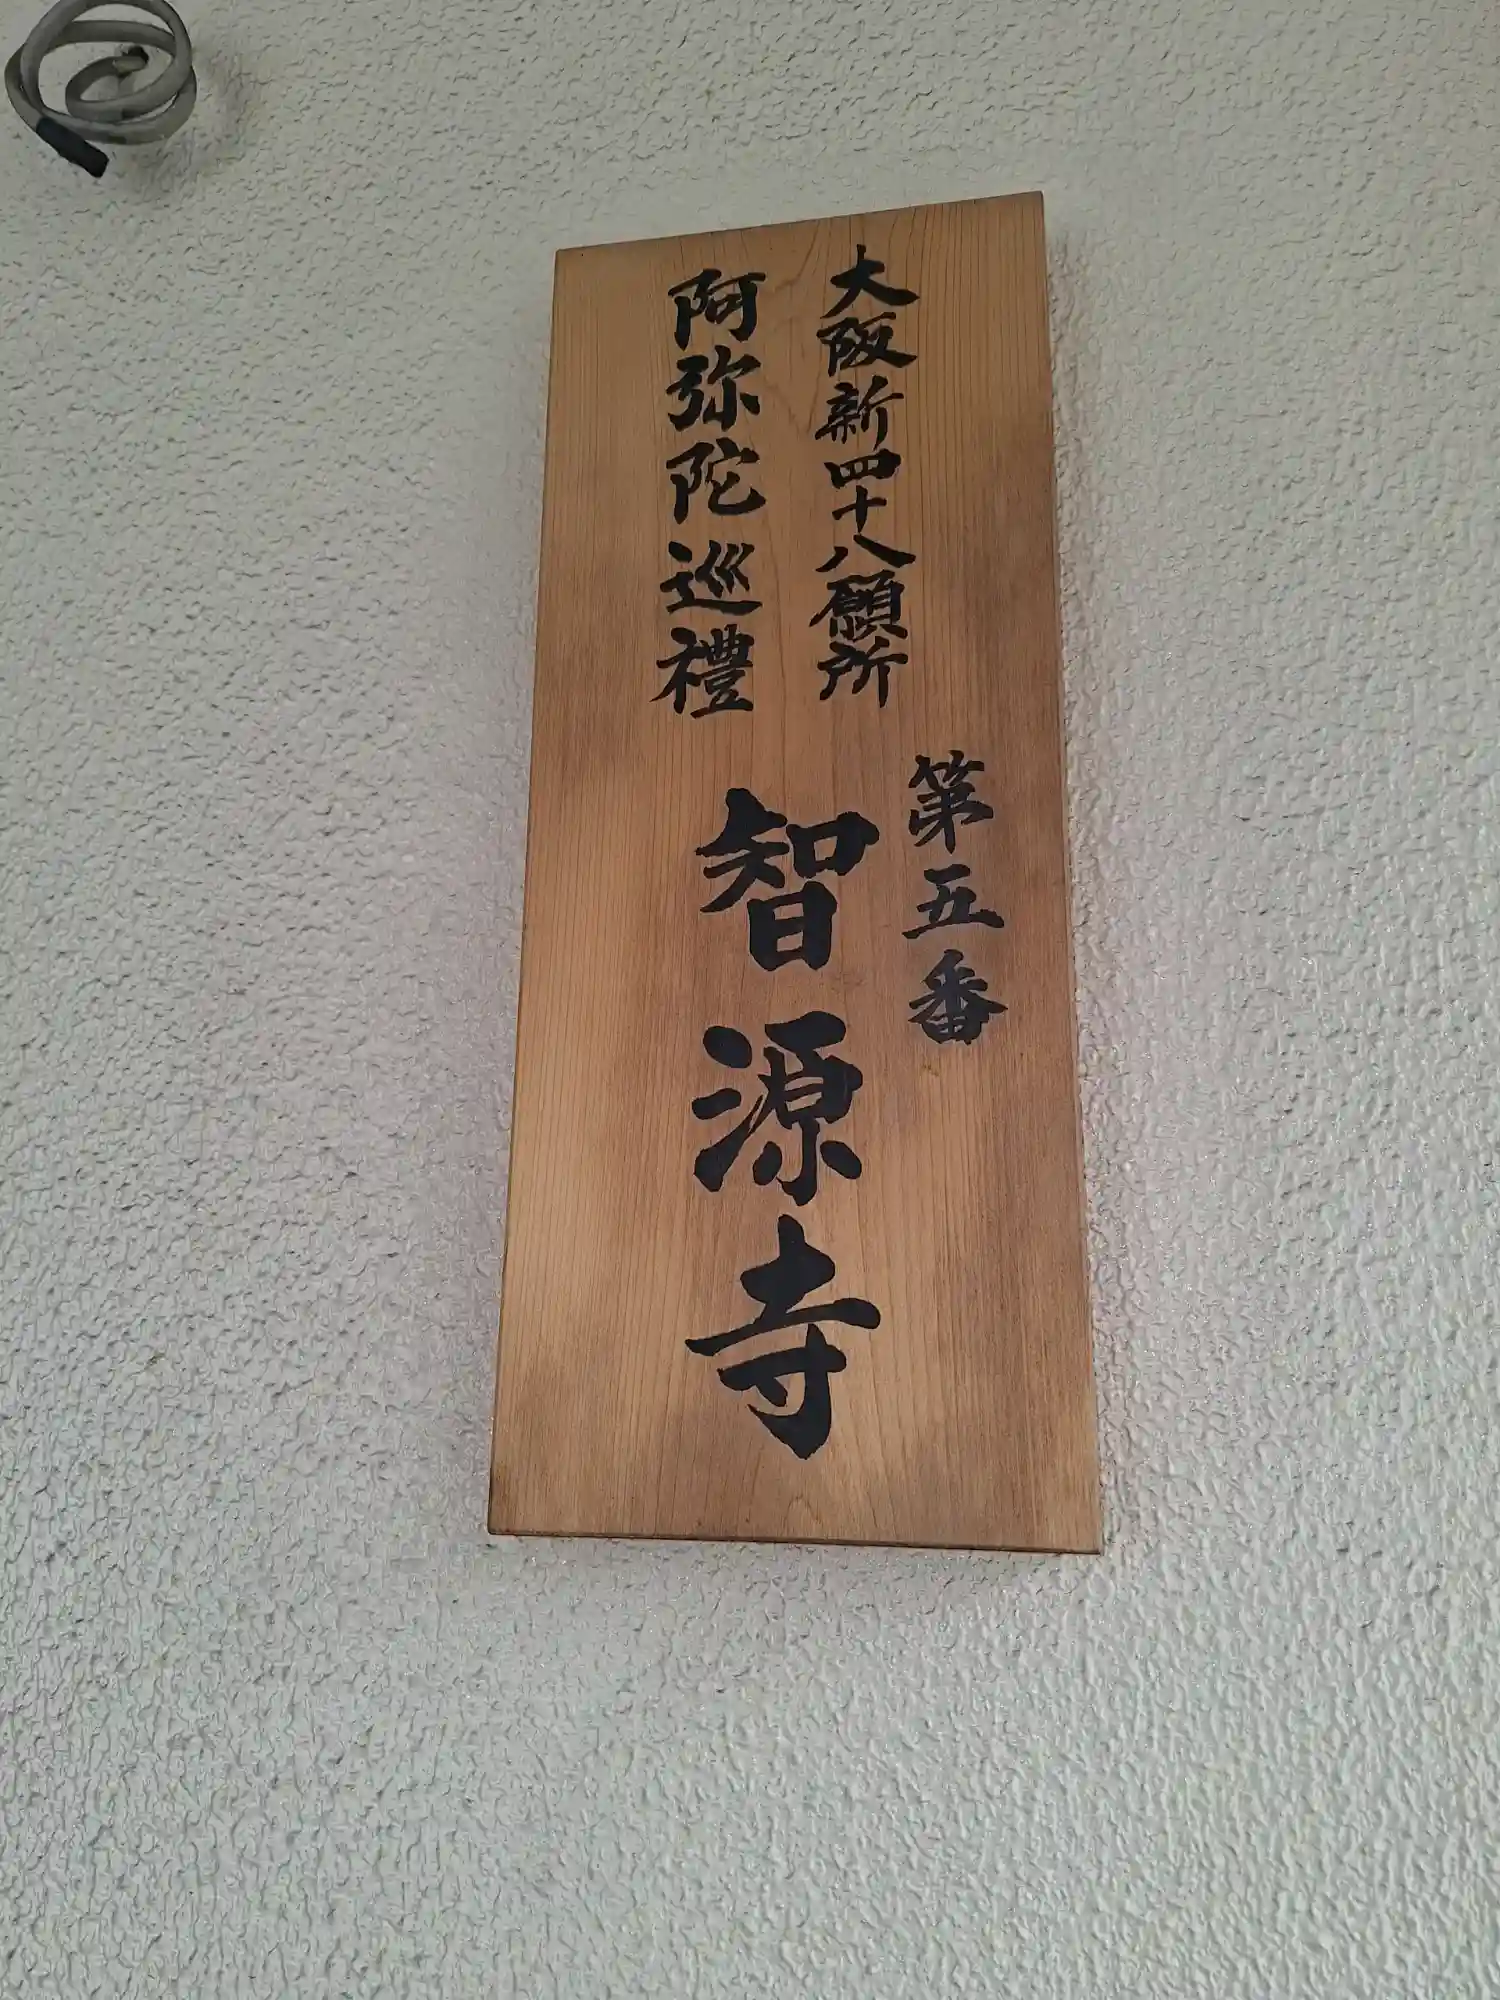 大阪新四十八願所
阿弥陀巡禮
第五番
智源寺